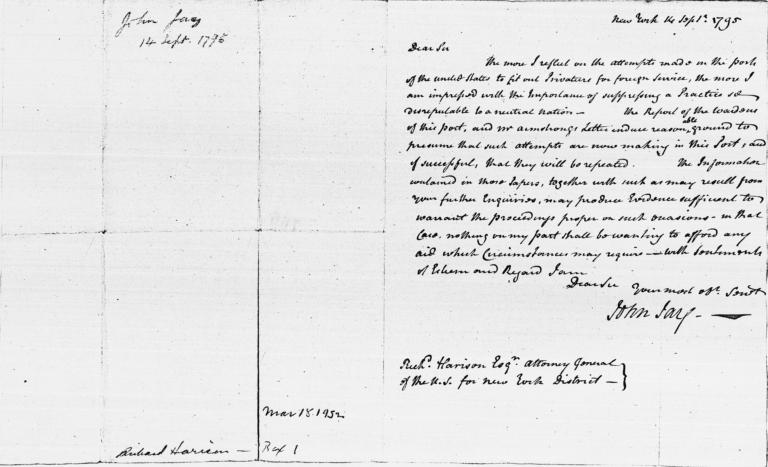 John Jay
14 Sept. 1795
Richard Harison —
Mar 18 1952
Box 1
New York 14 Sept.r 1795
Dear Sir
The more I reflect on the attempts made in the ports
of the united States to fit out Privateers for foreign Service, the more I
am impressed with the Importance of suppressing a Practice so
disreputable to a neutral nation — the Report of the wardens
of this port, and mr armstrongs Letter induce reasonable ground to
presume that such attempts are now making in this Port, and
if successful, that they will be repeated. The Information
contained in those Papers, together with such as may result from
your further Enquiries, may produce Evidence sufficient to
warrant the proceedings proper on such occasions – in that
Case, nothing on my part shall be wanting to afford any
aid which Circumstances may require — with Sentiments
of Esteem and Regard I am
Dear Sir your most ob.t Servt
John Jay —
Rich.d Harison Esq.r attorney General
of the U.S. for new York District —